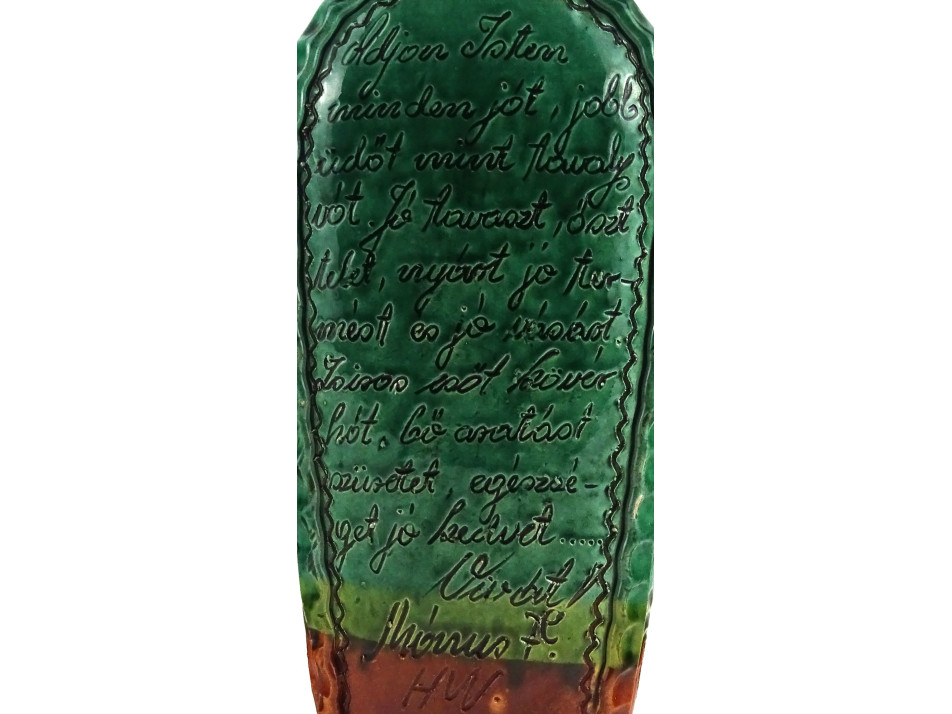 Adjon Isten
minden jót, jobb
üdőt mint tavaly
vót. Jó tavaszt, őszt
telet, nyárt jó ter-
mést es jó vásárt.
Zsiros sőt kövér
hót, bő aratást
szüretet, egészsé-
get jó kedvet.....
Mónus F.
HW